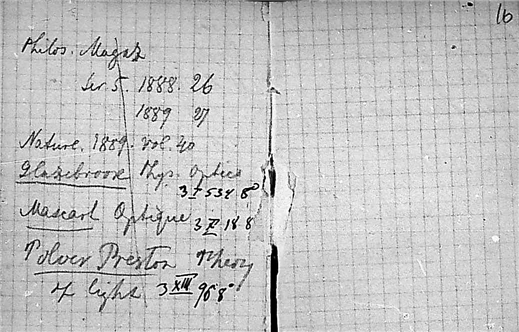 16
Philos. Magaz
Ser 5. 1888. 26
1889 27
Nature. 1889. vol. 40
Glazebrook Phys. Optics
3 X 534 8°
Mascart Optique 3 X 18 8
Tolver Preston Theory
of light 3 XIII 96 8°